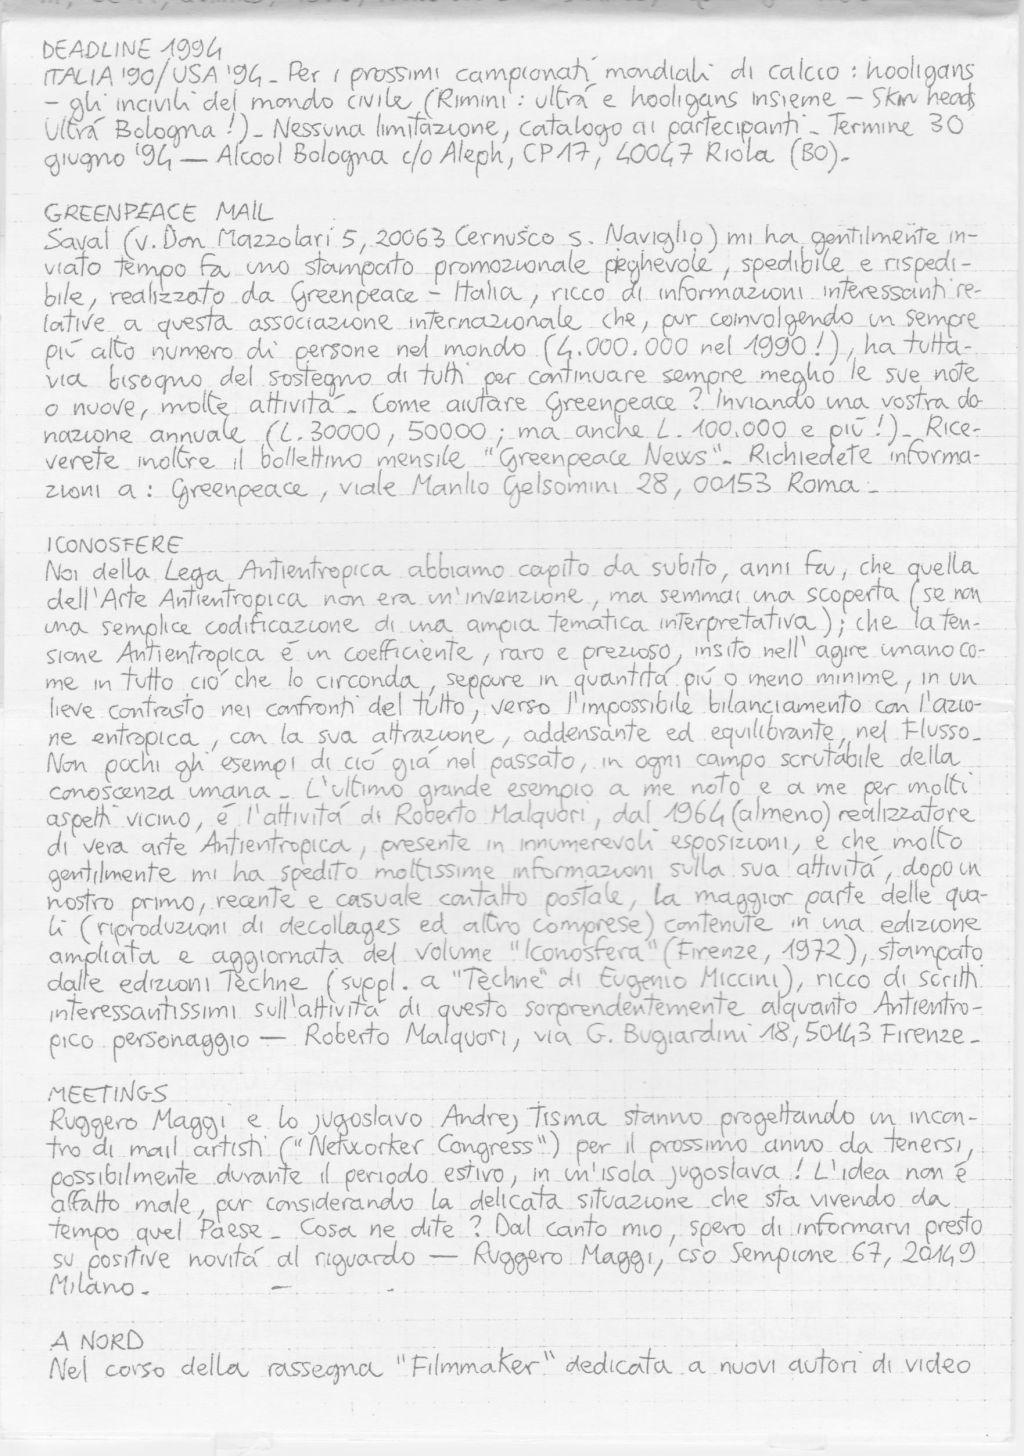 DEADLINE 1994
ITALIA '90/USA '94_ Per i prossimi campionati mondiali di calcio : hooligans
- gli incivili del mondo civile (Rimini : ultrá e hooligans insieme - Skin heads
Ultrá Bologna !)_ Nessuna limitazione, catalogo ai partecipanti_ Termine 30
giugno '94 — Alcool Bologna c/o Aleph, CP 17, 40047 Riola (BO)_
GREENPEACE MAIL
Saval (v. Don Mazzolari 5, 20063 Cernusco s. Naviglio) mi ha gentilmente in-
viato tempo fa uno stampato promozionale pieghevole, spedibile e rispedi-
bile, realizzato da Greenpeace - Italia, ricco di informazioni interessanti re-
lative a questa associazione internazionale che, pur coinvolgendo un sempre
piú alto numero di persone nel mondo (4.000.000 nel 1990!), ha tutta-
via bisogno del sostegno di tutti per continuare sempre meglio le sue note
o nuove, molte attivitá_ Come aiutare Greenpeace ? Inviando una vostra do-
nazione annuale (L. 30000, 50000 ; ma anche L. 100.000 e piú !)_ Rice-
verete inoltre il bollettino mensile "Greenpeace News"_ Richiedete informa-
zioni a : Greenpeace, viale Manlio Gelsomini 28, 00153 Roma_
ICONOSFERE
Noi della Lega Antientropica abbiamo capito da subito, anni fa, che quella
dell'Arte Antientropica non era un'invenzione, ma semmai una scoperta (se non
una semplice codificazione di una ampia tematica interpretativa); che la ten-
sione Antientropica é un coefficiente, raro e prezioso, insito nell'agire umano co-
me in tutto ció che lo circonda, seppure in quantitá piú o meno minime, in un
lieve contrasto nei confronti del tutto, verso l'impossibile bilanciamento con l'azio-
ne entropica, con la sua attrazione, addensante ed equilibrante, nel Flusso_
Non pochi gli esempi di ció giá nel passato, in ogni campo scrutabile della
conoscenza umana_ L'ultimo grande esempio a me noto e a me per molti
aspetti vicino, é l'attivitá di Roberto Malquori, dal 1964 (almeno) realizzatore
di vera arte Antientropica, presente in innumerevoli esposizioni, e che molto
gentilmente mi ha spedito moltissime informazioni sulla sua attivitá, dopo un
nostro primo, recente e casuale contatto postale, la maggior parte delle qua-
li (riproduzioni di decollages ed altro comprese) contenute in una edizione
ampliata e aggiornata del volume "Iconosfera" (Firenze, 1972), stampato
dalle edizioni Techne (suppl. a "Techne" di Eugenio Miccini), ricco di scritti
interessantissimi sull'attivitá di questo sorprendentemente alquanto Antientro-
pico personaggio — Roberto Malquori, via G. Bugiardini 18, 50143 Firenze_
MEETINGS
Ruggero Maggi e lo jugoslavo Andrej Tisma stanno progettando un incon-
tro di mail artisti ("Networker Congress") per il prossimo anno da tenersi,
possibilmente durante il periodo estivo, in un'isola jugoslava ! L'idea non é
affatto male, pur considerando la delicata situazione che sta vivendo da
tempo quel Paese_ Cosa ne dite ? Dal canto mio, spero di informarvi presto
su positive novitá al riguardo — Ruggero Maggi, cso Sempione 67, 20149
Milano_
A NORD
Nel corso della rassegna "Filmmaker" dedicata a nuovi autori di video